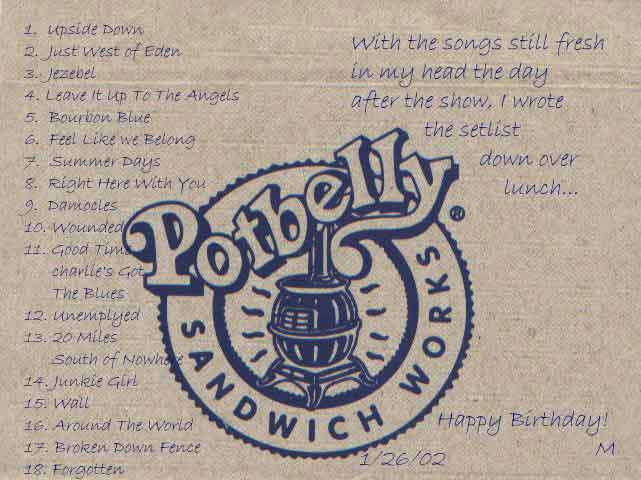 1. Upside Down
2. Just West of Eden
3. Jezebel
4. Leave It Up To The Angels
5. Bourbon Blue
6. Feel Like we Belong
7. Summer Days
8. Right Here With You
9. Damocles
10. Wounded
11. Good Time
charlie's Got
The Blues
12. Unemplyed
13. 20 Miles
South of Nowhere
14. Junkie Girl
15. Wall
16. Around The World
17. Broken Down Fence
18. Forgotten
With the songs still fresh
in my head the day
after the show, I wrote
the setlist
down over
lunch...
Potbelly®
SANDWICH WORKS
Happy Birthday!
M
1/26/02